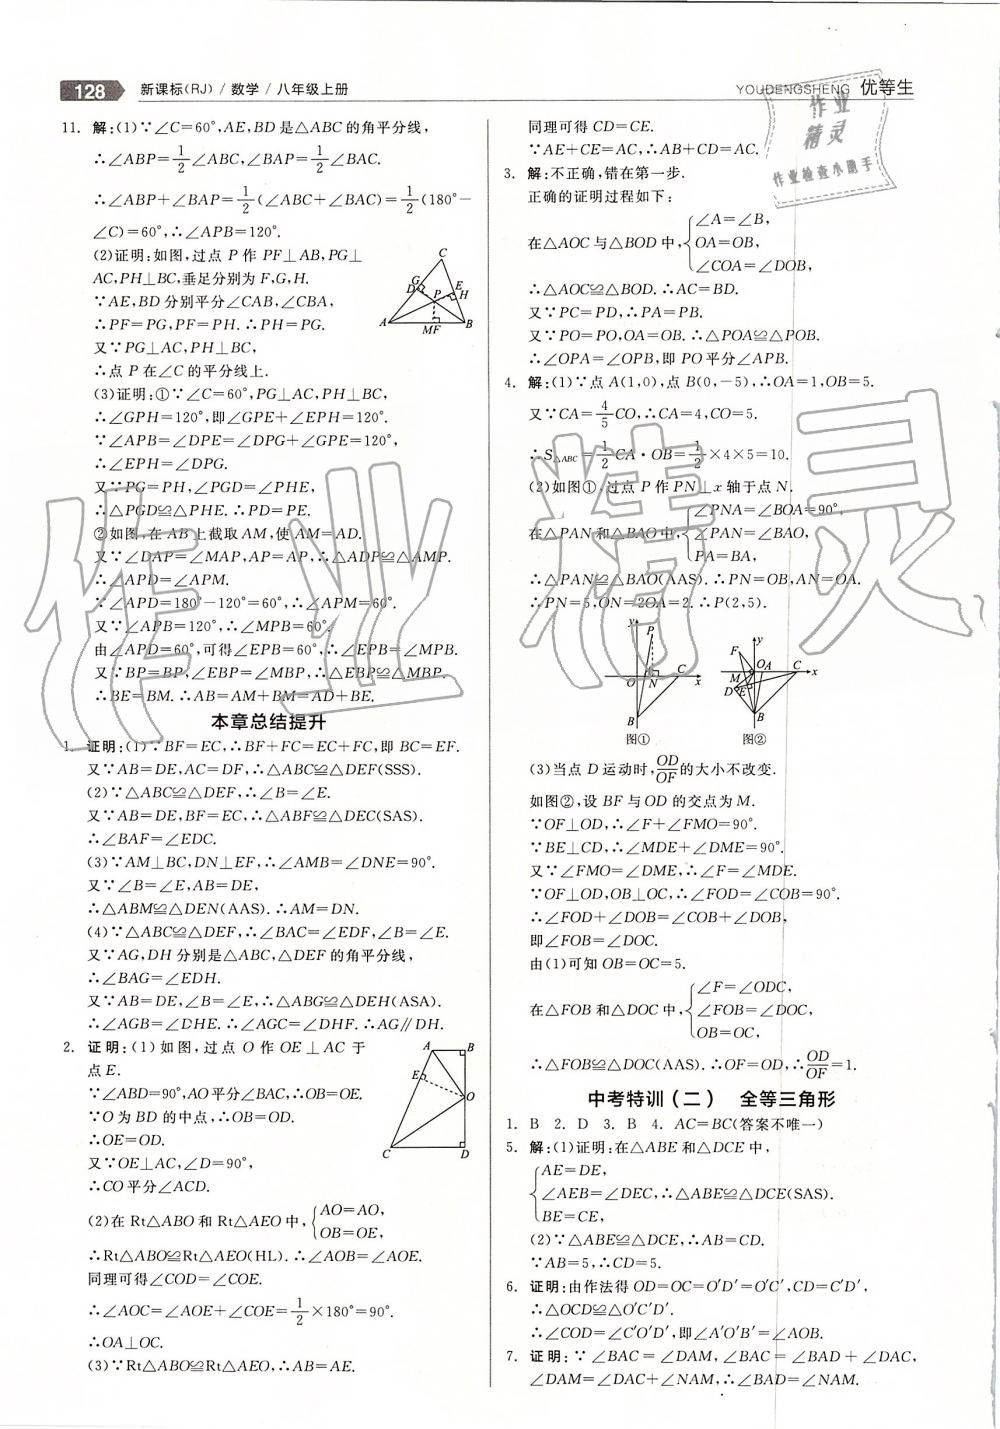 128 新课标(RJ) / 数学 / 八年级上册
YOUDENGSHENG 优等生
作业精灵
作业检查小助手
11. 解:(1)∵∠C=60°,AE,BD是△ABC的角平分线,
∴∠ABP=1/2∠ABC,∠BAP=1/2∠BAC.
∴∠ABP+∠BAP=1/2(∠ABC+∠BAC)=1/2(180°-
∠C)=60°,∴∠APB=120°.
(2)证明:如图,过点 P 作 PF⊥AB,PG⊥
AC,PH⊥BC,垂足分别为 F,G,H.
∵AE,BD分别平分∠CAB,∠CBA,
∴PF=PG,PF=PH.∴PH=PG.
又∵PG⊥AC,PH⊥BC,
∴点 P 在∠C的平分线上.
(3)证明:①∵∠C=60°,PG⊥AC,PH⊥BC,
∴∠GPH=120°,即∠GPE+∠EPH=120°.
∵∠APB=∠DPE=∠DPG+∠GPE=120°,
∴∠EPH=∠DPG.
又∵PG=PH,∠PGD=∠PHE,
∴△PGD≌△PHE.∴PD=PE.
②如图,在AB上截取AM,使AM=AD.
又∵∠DAP=∠MAP,AP=AP,∴△ADP≌△AMP.
∴∠APD=∠APM.
∵∠APD=180°-120°=60°,∴∠APM=60°.
又∵∠APB=120°,∴∠MPB=60°.
由∠APD=60°,可得∠EPB=60°,∴∠EPB=∠MPB.
又∵BP=BP,∠EBP=∠MBP,∴△EBP≌△MBP.
∴BE=BM.∴AB=AM+BM=AD+BE.
C
G
D
E
H
P
A
MF
B
本章总结提升
1. 证明:(1)∵BF=EC,∴BF+FC=EC+FC,即BC=EF.
又∵AB=DE,AC=DF,∴△ABC≌△DEF(SSS).
(2)∵△ABC≌△DEF,∴∠B=∠E.
又∵AB=DE,BF=EC,∴△ABF≌△DEC(SAS).
∴∠BAF=∠EDC.
(3)∵AM⊥BC,DN⊥EF,∴∠AMB=∠DNE=90°.
又∵∠B=∠E,AB=DE,
∴△ABM≌△DEN(AAS).∴AM=DN.
(4)∵△ABC≌△DEF,∴∠BAC=∠EDF,∠B=∠E.
又∵AG,DH分别是△ABC,△DEF的角平分线,
∴∠BAG=∠EDH.
又∵AB=DE,∠B=∠E,∴△ABG≌△DEH(ASA).
∴∠AGB=∠DHE.∴∠AGC=∠DHF.∴AG∥DH.
2. 证明:(1)如图,过点 O 作 OE⊥AC 于
点E.
∵∠ABD=90°,AO平分∠BAC,∴OB=OE.
∵O为BD的中点,∴OB=OD.
∴OE=OD.
又∵OE⊥AC,∠D=90°,
∴CO平分∠ACD.
(2)在 Rt△ABO 和 Rt△AEO 中,{AO=AO,
OB=OE,
∴Rt△ABO≌Rt△AEO(HL).∴∠AOB=∠AOE.
同理可得∠COD=∠COE.
∴∠AOC=∠AOE+∠COE=1/2×180°=90°.
∴OA⊥OC.
(3)∵Rt△ABO≌Rt△AEO,∴AB=AE.
A
B
E
O
C
D
同理可得CD=CE.
∵AE+CE=AC,∴AB+CD=AC.
3. 解:不正确,错在第一步.
正确的证明过程如下:
在△AOC与△BOD中,{∠A=∠B,
OA=OB,
∠COA=∠DOB,
∴△AOC≌△BOD.∴AC=BD.
又∵PC=PD,∴PA=PB.
又∵PO=PO,OA=OB.∴△POA≌△POB.
∴∠OPA=∠OPB,即PO平分∠APB.
4. 解:(1)∵点A(1,0),点B(0,-5),∴OA=1,OB=5.
又∵CA=4/5CO,∴CA=4,CO=5.
∴S△ABC=1/2CA·OB=1/2×4×5=10.
(2)如图①,过点P作PN⊥x轴于点N.
在△PAN和△BAO中,{∠PNA=∠BOA=90°,
∠PAN=∠BAO,
PA=BA,
∴△PAN≌△BAO(AAS).∴PN=OB,AN=OA.
∴PN=5,ON=2OA=2.∴P(2,5).
y
P
O
N
C
x
B
图①
y
F
M
O
A
C
x
D
E
B
图②
(3)当点D运动时,OD/OF的大小不改变.
如图②,设BF与OD的交点为M.
∵OF⊥OD,∴∠F+∠FMO=90°.
∵BE⊥CD,∴∠MDE+∠DME=90°.
又∵∠FMO=∠DME,∴∠F=∠MDE.
∵OF⊥OD,OB⊥OC,∴∠FOD=∠COB=90°.
∴∠FOD+∠DOB=∠COB+∠DOB,
即∠FOB=∠DOC.
由(1)可知OB=OC=5.
在△FOB和△DOC中,{∠F=∠ODC,
∠FOB=∠DOC,
OB=OC,
∴△FOB≌△DOC(AAS).∴OF=OD.∴OD/OF=1.
中考特训(二) 全等三角形
1. B 2. D 3. B 4. AC=BC(答案不唯一)
5. 解:(1)证明:在△ABE和△DCE中,
{AE=DE,
∠AEB=∠DEC,∴△ABE≌△DCE(SAS).
BE=CE,
(2)∵△ABE≌△DCE,∴AB=CD.
∵AB=5,∴CD=5.
6. 证明:由作法得OD=OC=O′D′=O′C′,CD=C′D′,
∴△OCD≌△O′C′D′.
∴∠COD=∠C′O′D′,即∠A′O′B′=∠AOB.
7. 证明:∵∠BAC=∠DAM,∠BAC=∠BAD+∠DAC,
∠DAM=∠DAC+∠NAM,∴∠BAD=∠NAM.
作业精灵